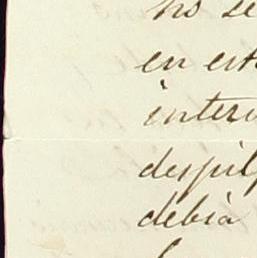 no se
en est
interv
despilf
debia